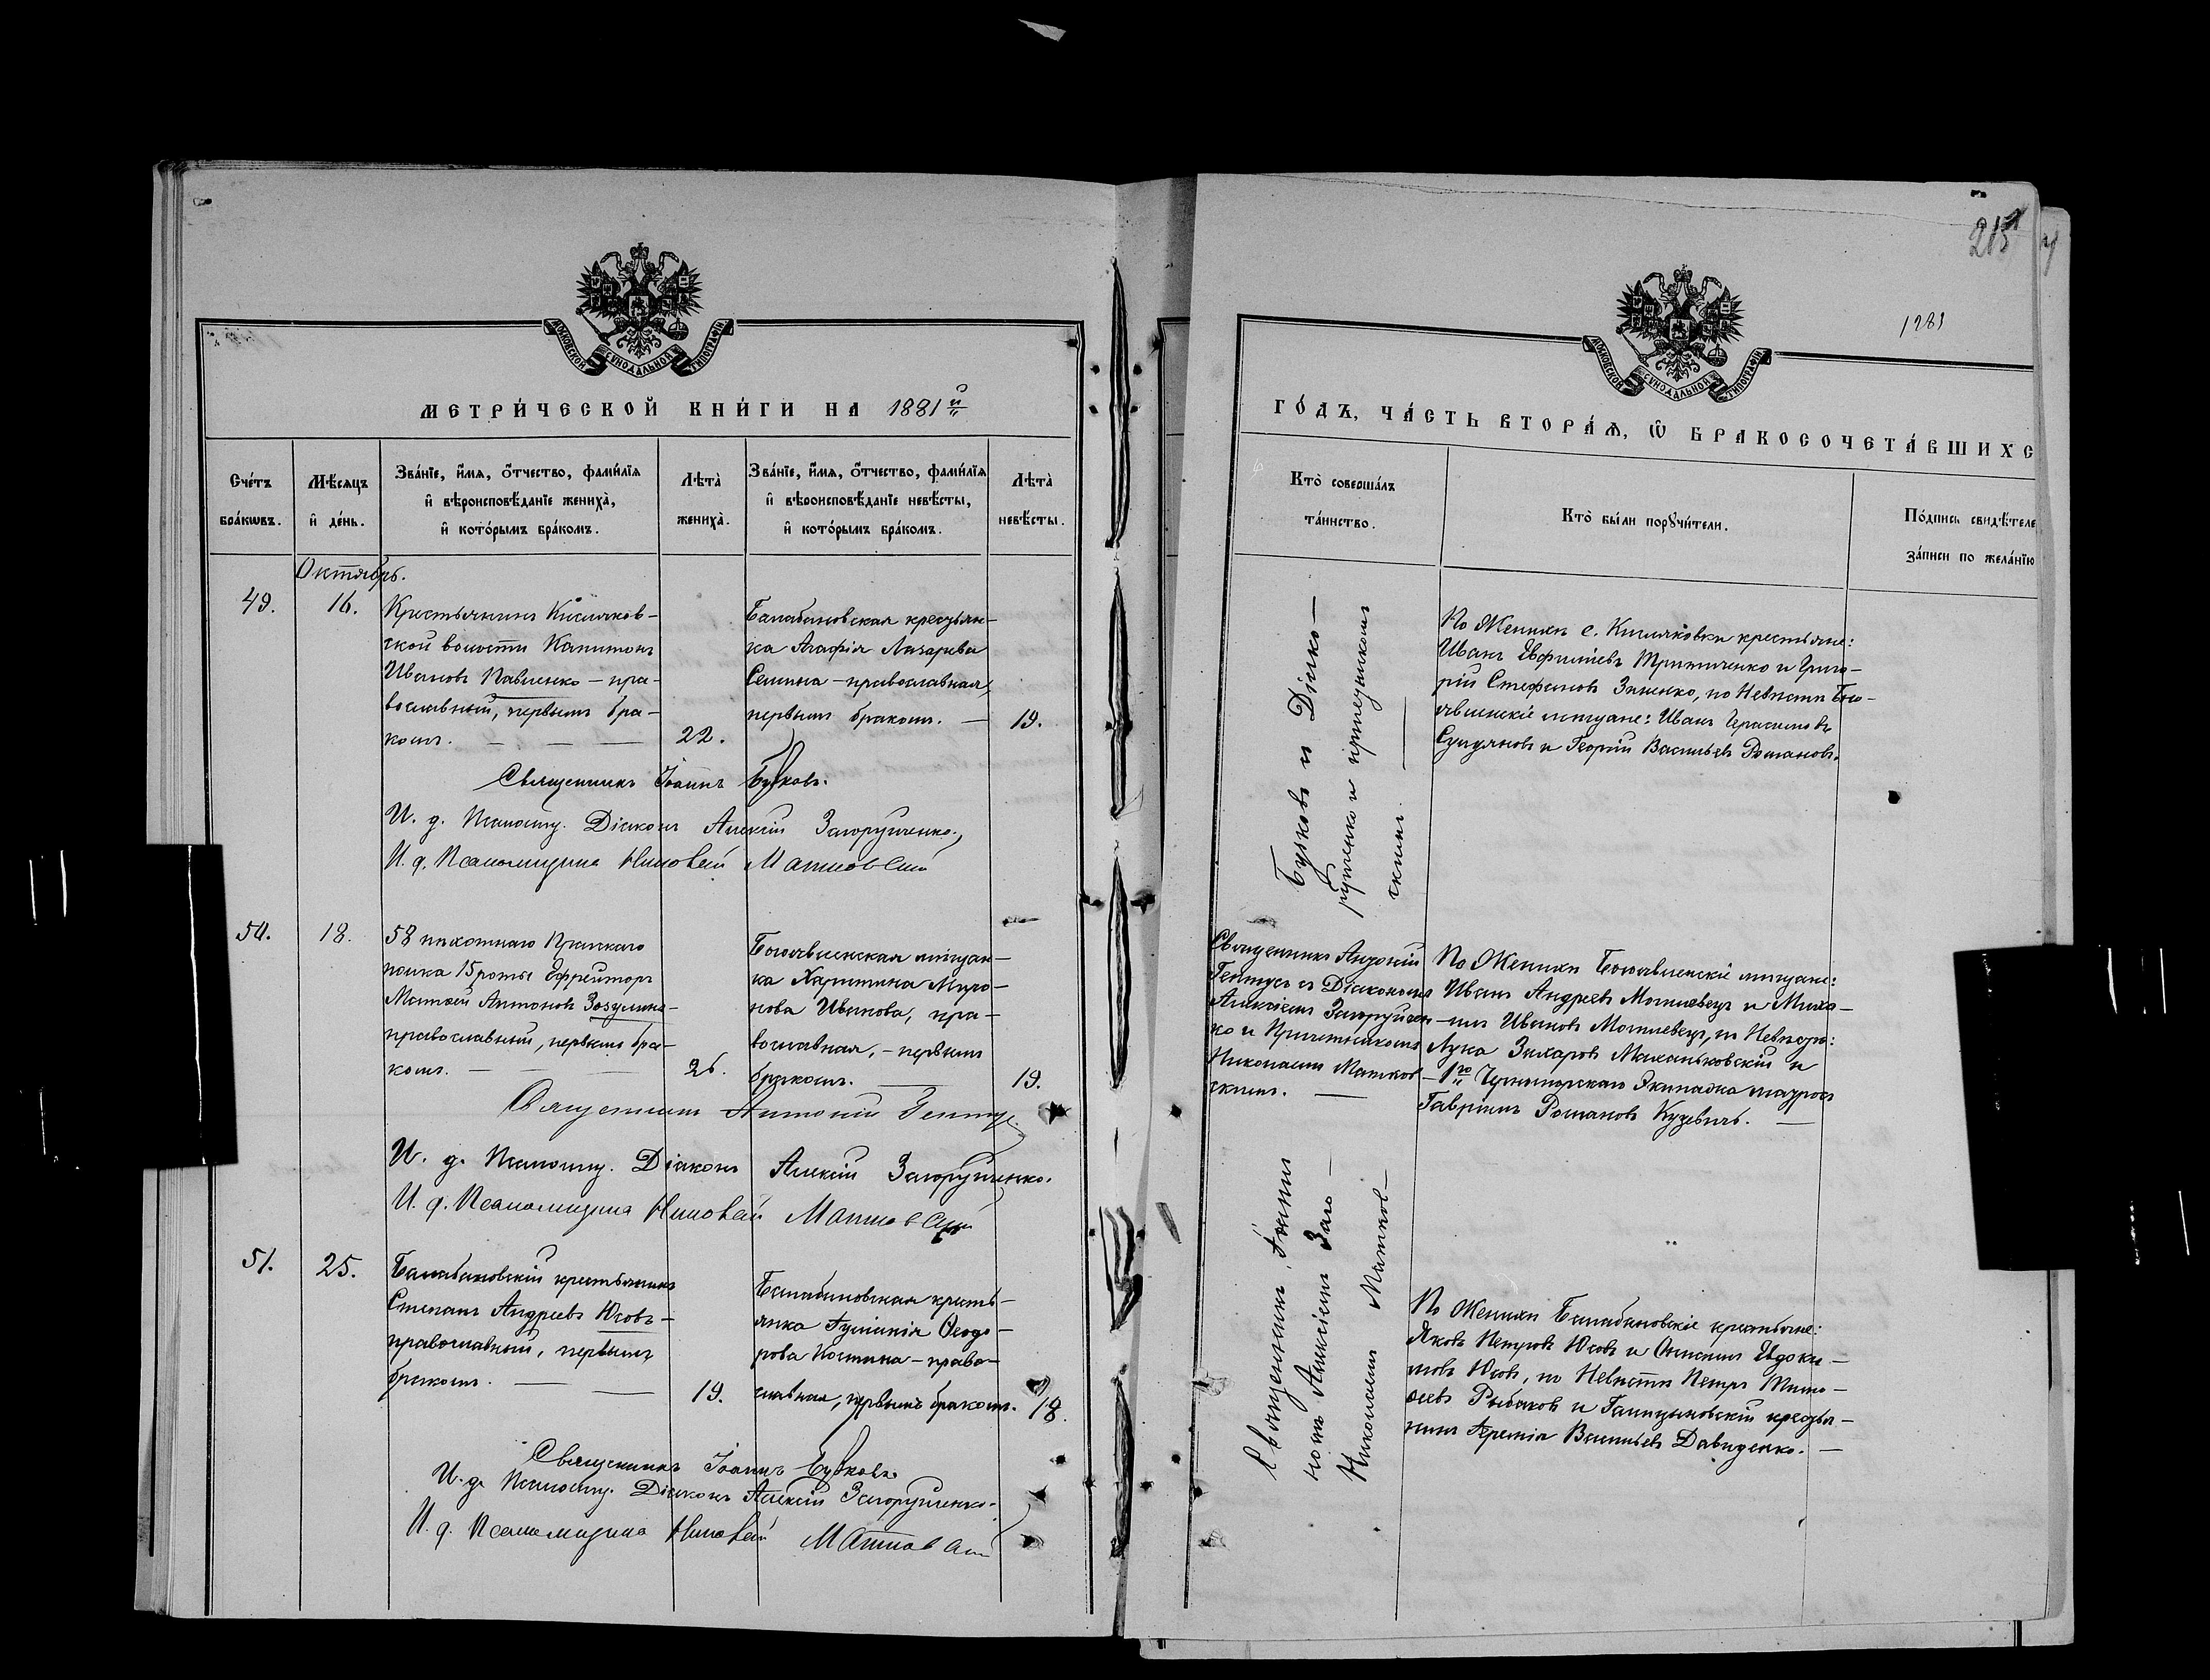 215
1281
МОСКОВСКОЙ СѴНОДАЛЬНОЙ ТИПОГРАФІИ
МЕТРИ́ЧЕСКОЙ КНИ́ГИ НА 1881й
Сче́тъ бра́кѡвъ.
Мѣ́сяцъ и҆ де́нь.
Зва́нїе, и҆́мя, ѻ҆́тчество, фами́лїя
и҆ вѣроисповѣ́данїе жениха̀,
и҆ кото́рымъ бра́комъ.
Лѣта̀ жениха̀.
Зва́нїе, и҆́мя, ѻ҆́тчество, фами́лїя
и҆ вѣроисповѣ́данїе невѣ́сты,
и҆ кото́рымъ бра́комъ.
Лѣта̀ невѣ́сты.
Октябрь.
49.
16.
Крестьянинъ Кисляков-
ской волости Капитонъ
Ивановъ Павленко - пра-
вославный, первымъ бра-
комъ.
22.
Балабановская крестьян-
ка Агафія Лазарева
Семина - православная,
первымъ бракомъ. —
19.
Священникъ Іоаннъ Бузковъ.
И. д. Псаломщ. Діаконъ Алексій Загорушченко.
И. д. Псаломщика Николай Матковскій
50.
18.
58 пѣхотнаго Прагскаго
полка 15 роты Ефрейторъ
Матѳей Антоновъ Зозулина-
православный, первымъ бра-
комъ.
26.
Богоявленская мѣщан-
ка Харитина Миро-
нова Иванова, пра-
вославная, - первымъ
бракомъ.
19.
Священникъ Антоній Гентуз
И. д. Псаломщ. Діаконъ Алексій Загорушченко.
И. д. Псаломщика Николай Матковскій
51.
25.
Балабановскій крестьянинъ
Степанъ Андреевъ Юсовъ -
православный, первымъ
бракомъ.
19.
Балабановская кресть-
янка Ѳеодо-
рова Костина - право-
славная, первымъ бракомъ.
18.
Священникъ Іоаннъ Бузковъ.
И. д. Псаломщ. Діаконъ Алексій Загорушченко.
И. д. Псаломщика Николай Матковскій
МОСКОВСКОЙ СѴНОДАЛЬНОЙ ТИПОГРАФІИ
ГО́ДЪ, ЧА́СТЬ ВТОРА́Ѧ, Ѡ҆ БРАКОСОЧЕТА́ВШИХС
Кто̀ соверша́лъ
та́инство.
Кто̀ бы́ли порꙋчи́тели.
По́дпись свидѣ́теле
за́писи по жела́нїю
Бузковъ и Діако-
рушченко и причетникомъ
скимъ.
По Женихѣ с. Кисляковки крестьяне:
Иванъ Евфиміевъ Тритиченко и Григо-
рій Стефановъ Зиненко, по Невѣстѣ Бого-
явленскіе мѣщане: Иванъ Герасимовъ
и Георгій Васильевъ Романовъ.
Священникъ Андоній
Гентусъ съ Діакономъ
Алексіемъ Загорушчен-
ко и Причетникомъ
Николаемъ Матков-
скимъ. —
По Женихѣ Богоявленскіе мѣщане:
Иванъ Андреевъ Могилевецъ и Миха-
илъ Ивановъ Могилевецъ, по Невѣстѣ:
Лука Захаровъ Маханьковскій и
1го Черноморскаго Экипажа матросъ
Гавріилъ Романовъ Кузевичъ. —
Священникъ Іоаннъ
номъ Алексіемъ Заго-
Николаемъ Матков-
По Женихѣ Балабановскіе крестьяне:
Яковъ Петровъ Юсовъ и Онисимъ Евдоки-
мовъ Юсовъ, по Невѣстѣ Петръ Тимо-
ѳеевъ Рыбаковъ и Галицыновскій крестья-
нинъ Іеремія Васильевъ Давиденко. —